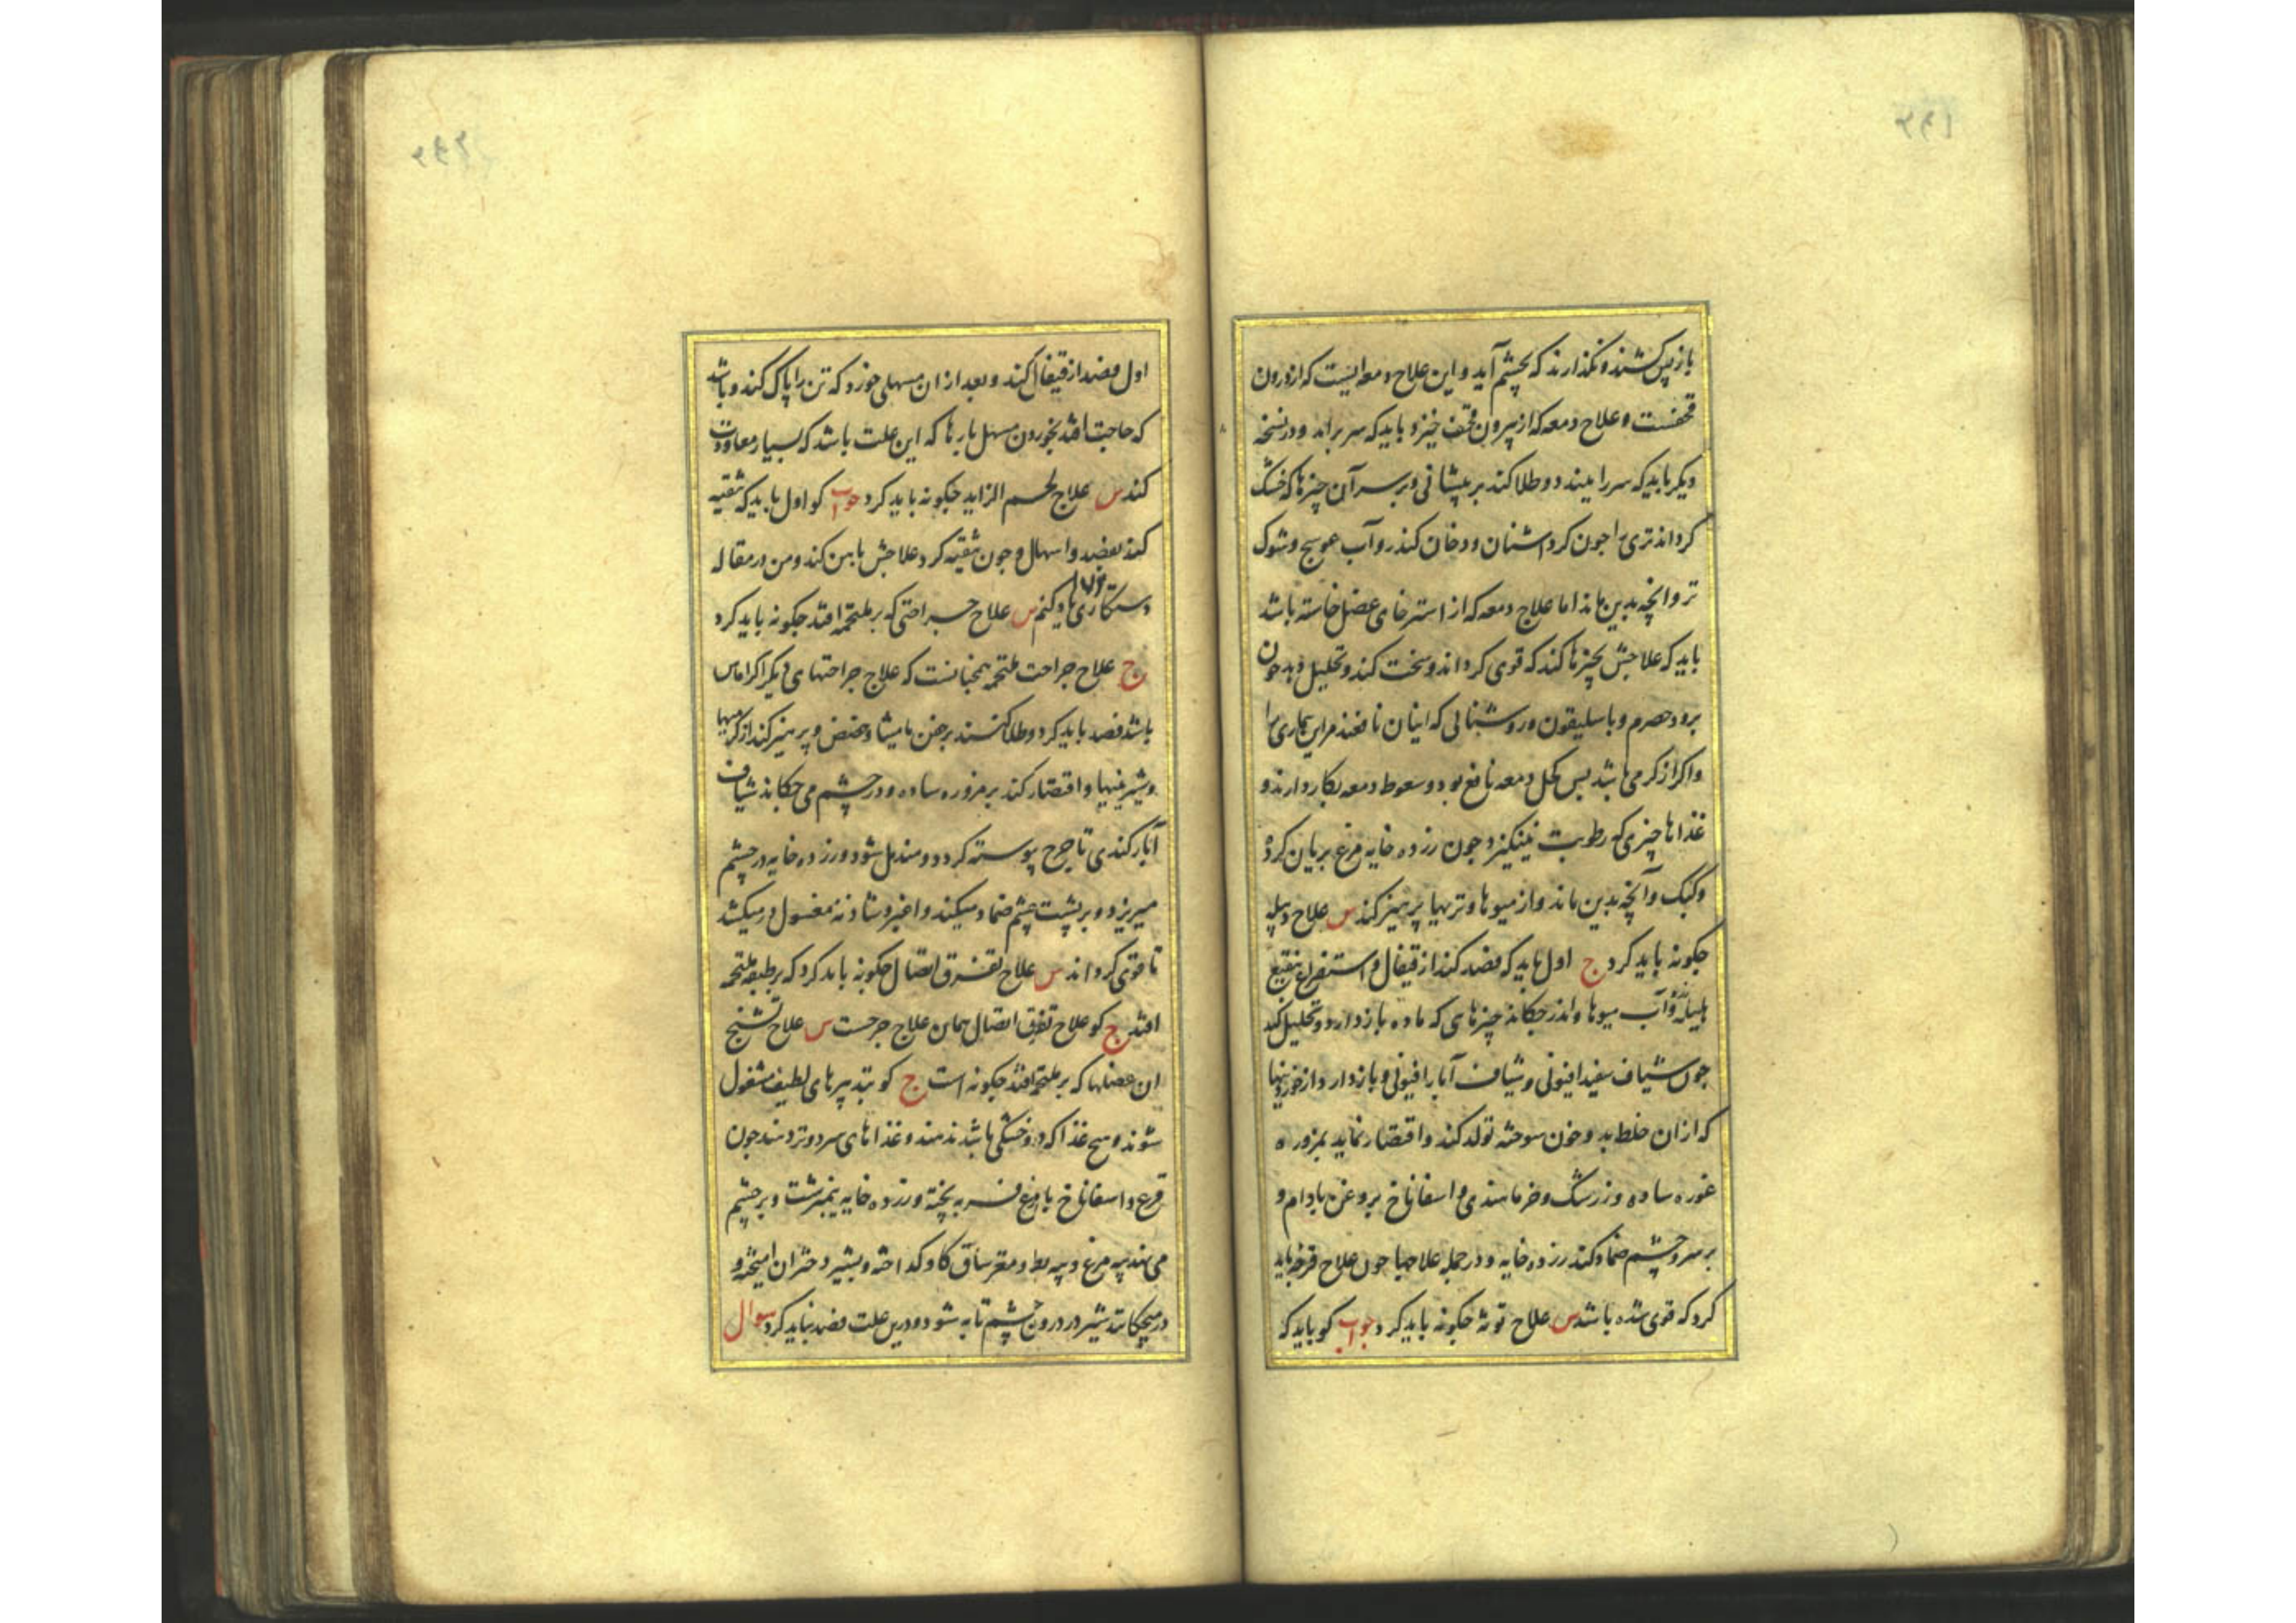 باز پس کشند و نکذارند که بچشم آید و این علاج دمعه ایست که از درون
قحفست و علاج دمعه که از بیرون قحف خیزد باید که سر براند و در نسخه
دیکر باید که سر را ببندد و طلا کند بر پیشانی و بر سر آن چیزها که خشک
کرداند تری را جون کرد اشنان و دخان کندر و آب عوسج و شوک
تر و انچه بدین ماند اما علاج دمعه که از استرخای عضل خاسته باشد
باید که علاجش بچیزها کند که قوی کرداند و سخت کند و تحلیل دهد جون
برود حصرم و باسلیقون و روشنائی که اینان نافعند مر این بیماری را
و اکر از کرمی باشد بس کحل دمعه نافع بود و سعوط دمعه بکار دارند و
غذاها چیزی که رطوبت نینکیزد جون زرده خایه مرغ بریان کرده
و کبک و آنچه بدین ماند و از میوها و تریها پرهیز کند س علاج دبیله
جکونه باید کرد ج اول باید که فصد کند از قیفال و استفراغ بنقیع
هلیله و آب میوها و اندر جکاند چیزهای که ماده باز دارد و تحلیل کند
جون شیاف سفید افیونی و شیاف آبار افیونی و باز دارد از خوردنیها
که از ان خلط بد و خون سوخته تولد کند و اقتصار نماید بمزوره
غوره ساده و زرشک و خرما هندی و اسفاناخ بروغن بادام و
بر سر و چشم ضماد کند زرده خایه و در جمله علاجها جون علاج قرحه باید
کرد که قوی شده باشد س علاج توثه جکونه باید کرد جواب کو باید که
اول فصد از قیفال کند و بعد از ان مسهلی خورد که تن را پاک کند و باشد
که حاجت افتد بخوردن مسهل بارها که این علت باشد که بسیار معاودت
کند س علاج لحم الزاید جکونه باید کرد جواب کو اول باید که تنقیه
کند بفصد و اسهال و جون تنقیه کرد علاجش بآهن کند و من در مقاله
دستکاری یاد کنم س علاج جراحتی که بر ملتحمه افتد جکونه باید کرد
ج علاج جراحت ملتحمه همچنانست که علاج جراحتهای دیکر اکر اماس
باشد فصد باید کرد و طلا کنند بر جفن مامیثا و حضض و پرهیز کند از کرمیها
و شیرینیها و اقتصار کند بر مزوره ساده و در چشم می جکاند شیاف
آبار کندی تا جرح پوسته کردد و مندمل شود و زرده خایه در چشم
میریزد و بر پشت چشم ضماد میکند و اغبر و شادنه مغسول در میکشد
تا قوی کرداند س علاج تفرق اتصال جکونه باید کرد که بر طبقه ملتحمه
افتد ج کو علاج تفرق اتصال همان علاج جرحست س علاج تشنج
ان عضلها که بر ملتحمه افتد جکونه است ج کو بتدبیرهای لطیف مشغول
شوند و هیج غذا که درو خشکی باشد ندهند و غذاهای سرد و تر دهند جون
قرع و اسفاناخ با مرغ فربه پخته و زرده خایه نیمبرشت و بر چشم
می نهند پیه مرغ و پیه بط و مغز ساق کاو کداخته و بشیر دختران امیخته و
در میچکانند شیر در درون چشم تا به شود و درین علت فصد نباید کرد سوال